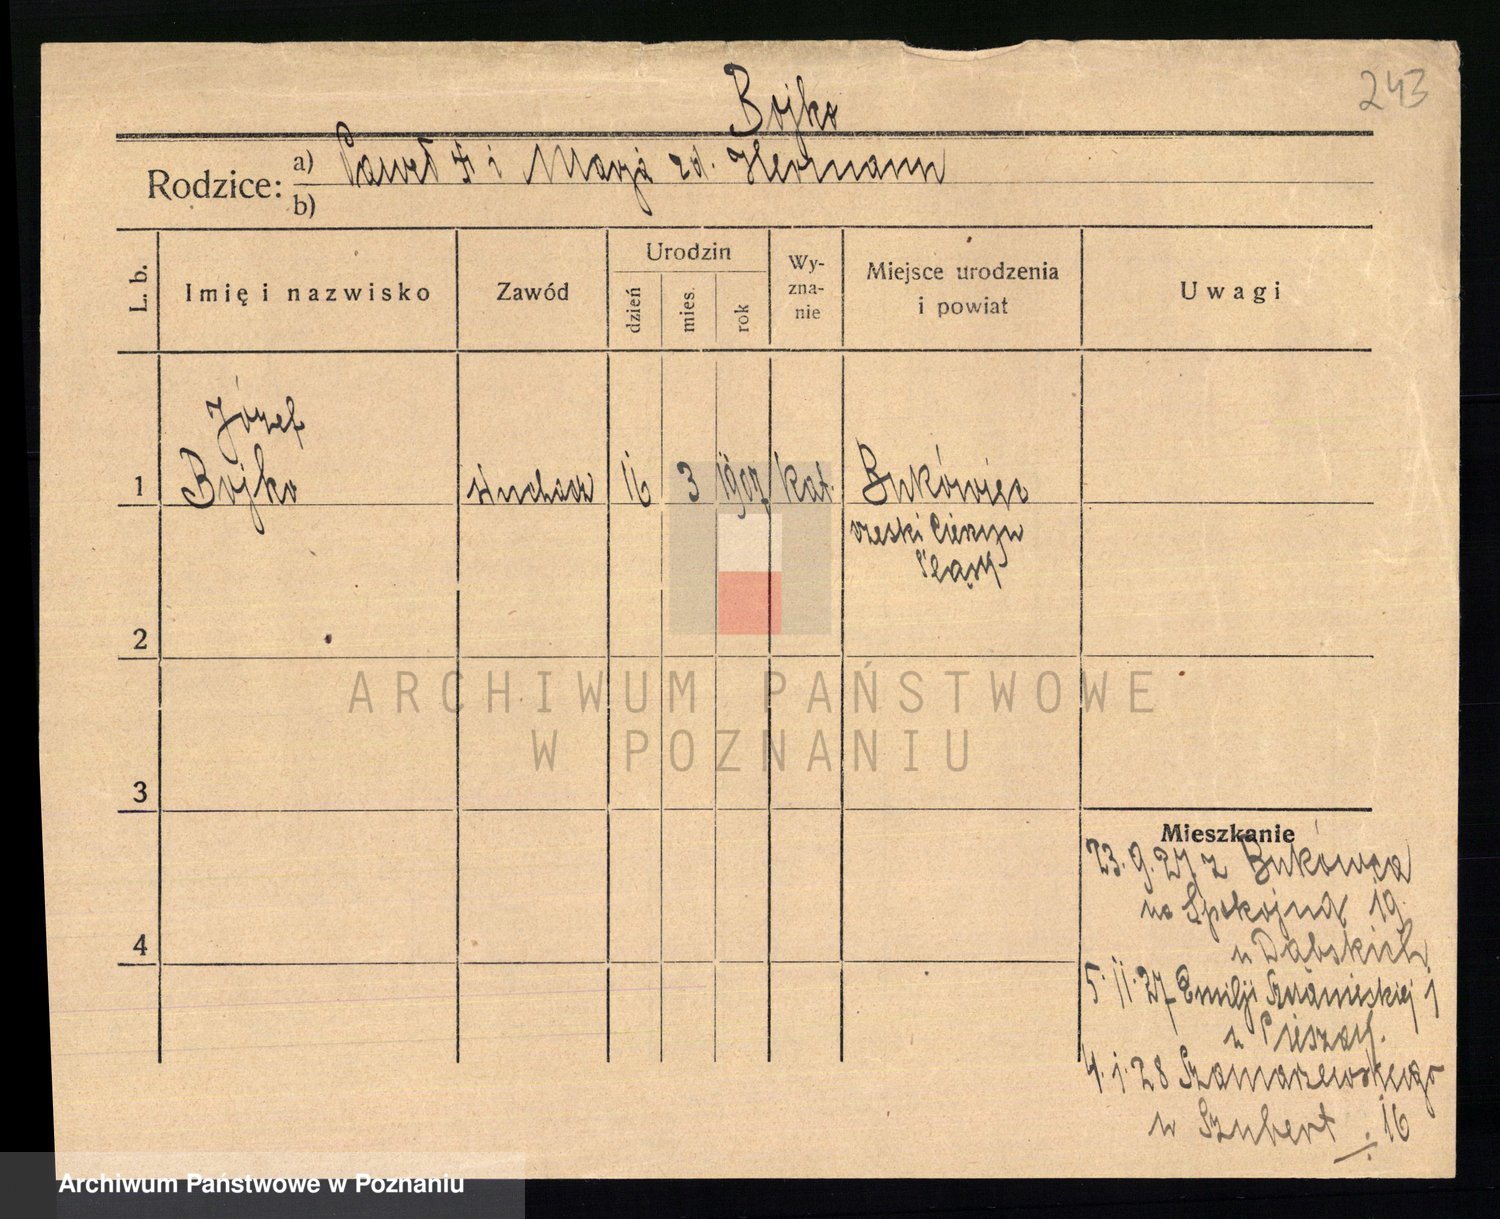 243
Bojko
Rodzice: a) Paweł i Marja zd. Hermann
b)
L. b. Imię i nazwisko Zawód Urodzin dzień mies. rok Wyznanie Miejsce urodzenia i powiat Uwagi
Józef
1 Bojko słuchacz 16 3 1907 kat. Bukówiec
czeski Cieszyn
Śląsk
2
3
4
Mieszkanie
23.9.27 z Bukówca
na Spokojną 19
u Dąbskich
5.11.27 Emilji Sczanieckiej 1
u
4.1.28 Szamarzewskiego
u Szubert 16
ARCHIWUM PAŃSTWOWE
W POZNANIU
Archiwum Państwowe w Poznaniu